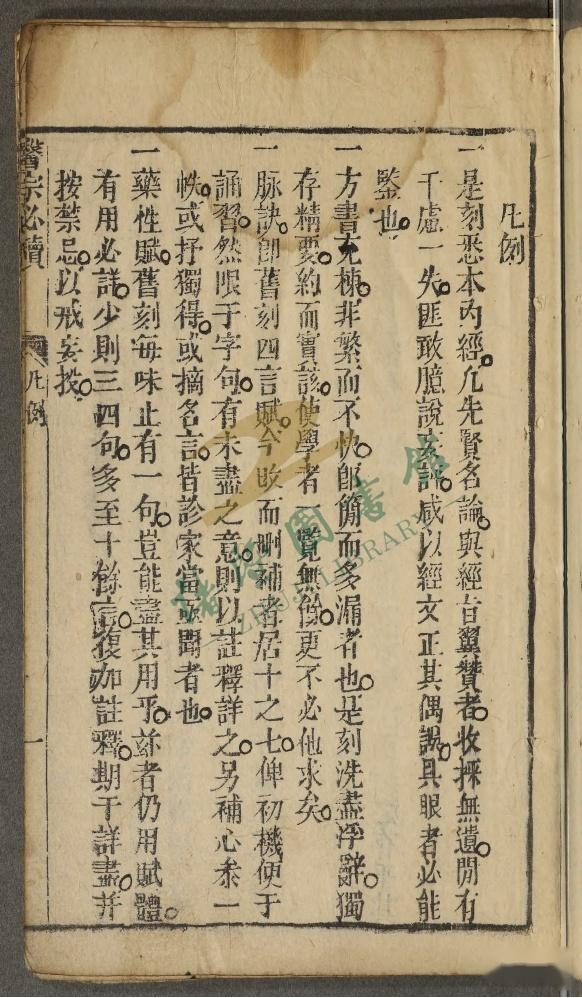 凡例
一是刻悉本內經凡先賢名論與經旨翼贊者收採無遺間有
千慮一失匪敢臆說妄評咸以經文正其偶誤具眼者必能
鍳也
一方書充棟非繁而不快卽簡而多漏者也是刻洗盡浮辭獨
存精要約而實該使學者一覽無餘更不必他求矣
一脉訣卽舊刻四言賦今改而刪補者居十之七俾初機便于
誦習然限于字句有未盡之意則以註釋詳之另補心參一
帙或抒獨得或摘名言皆診家當亟聞者也
一藥性賦舊刻每味止有一句豈能盡其用乎玆者仍用賦體
有用必詳少則三四句多至十餘言復加註釋期于詳盡幷
按禁忌以戒妄投
醫宗必讀
凡例
一
諸源圖書館
LIBRARY